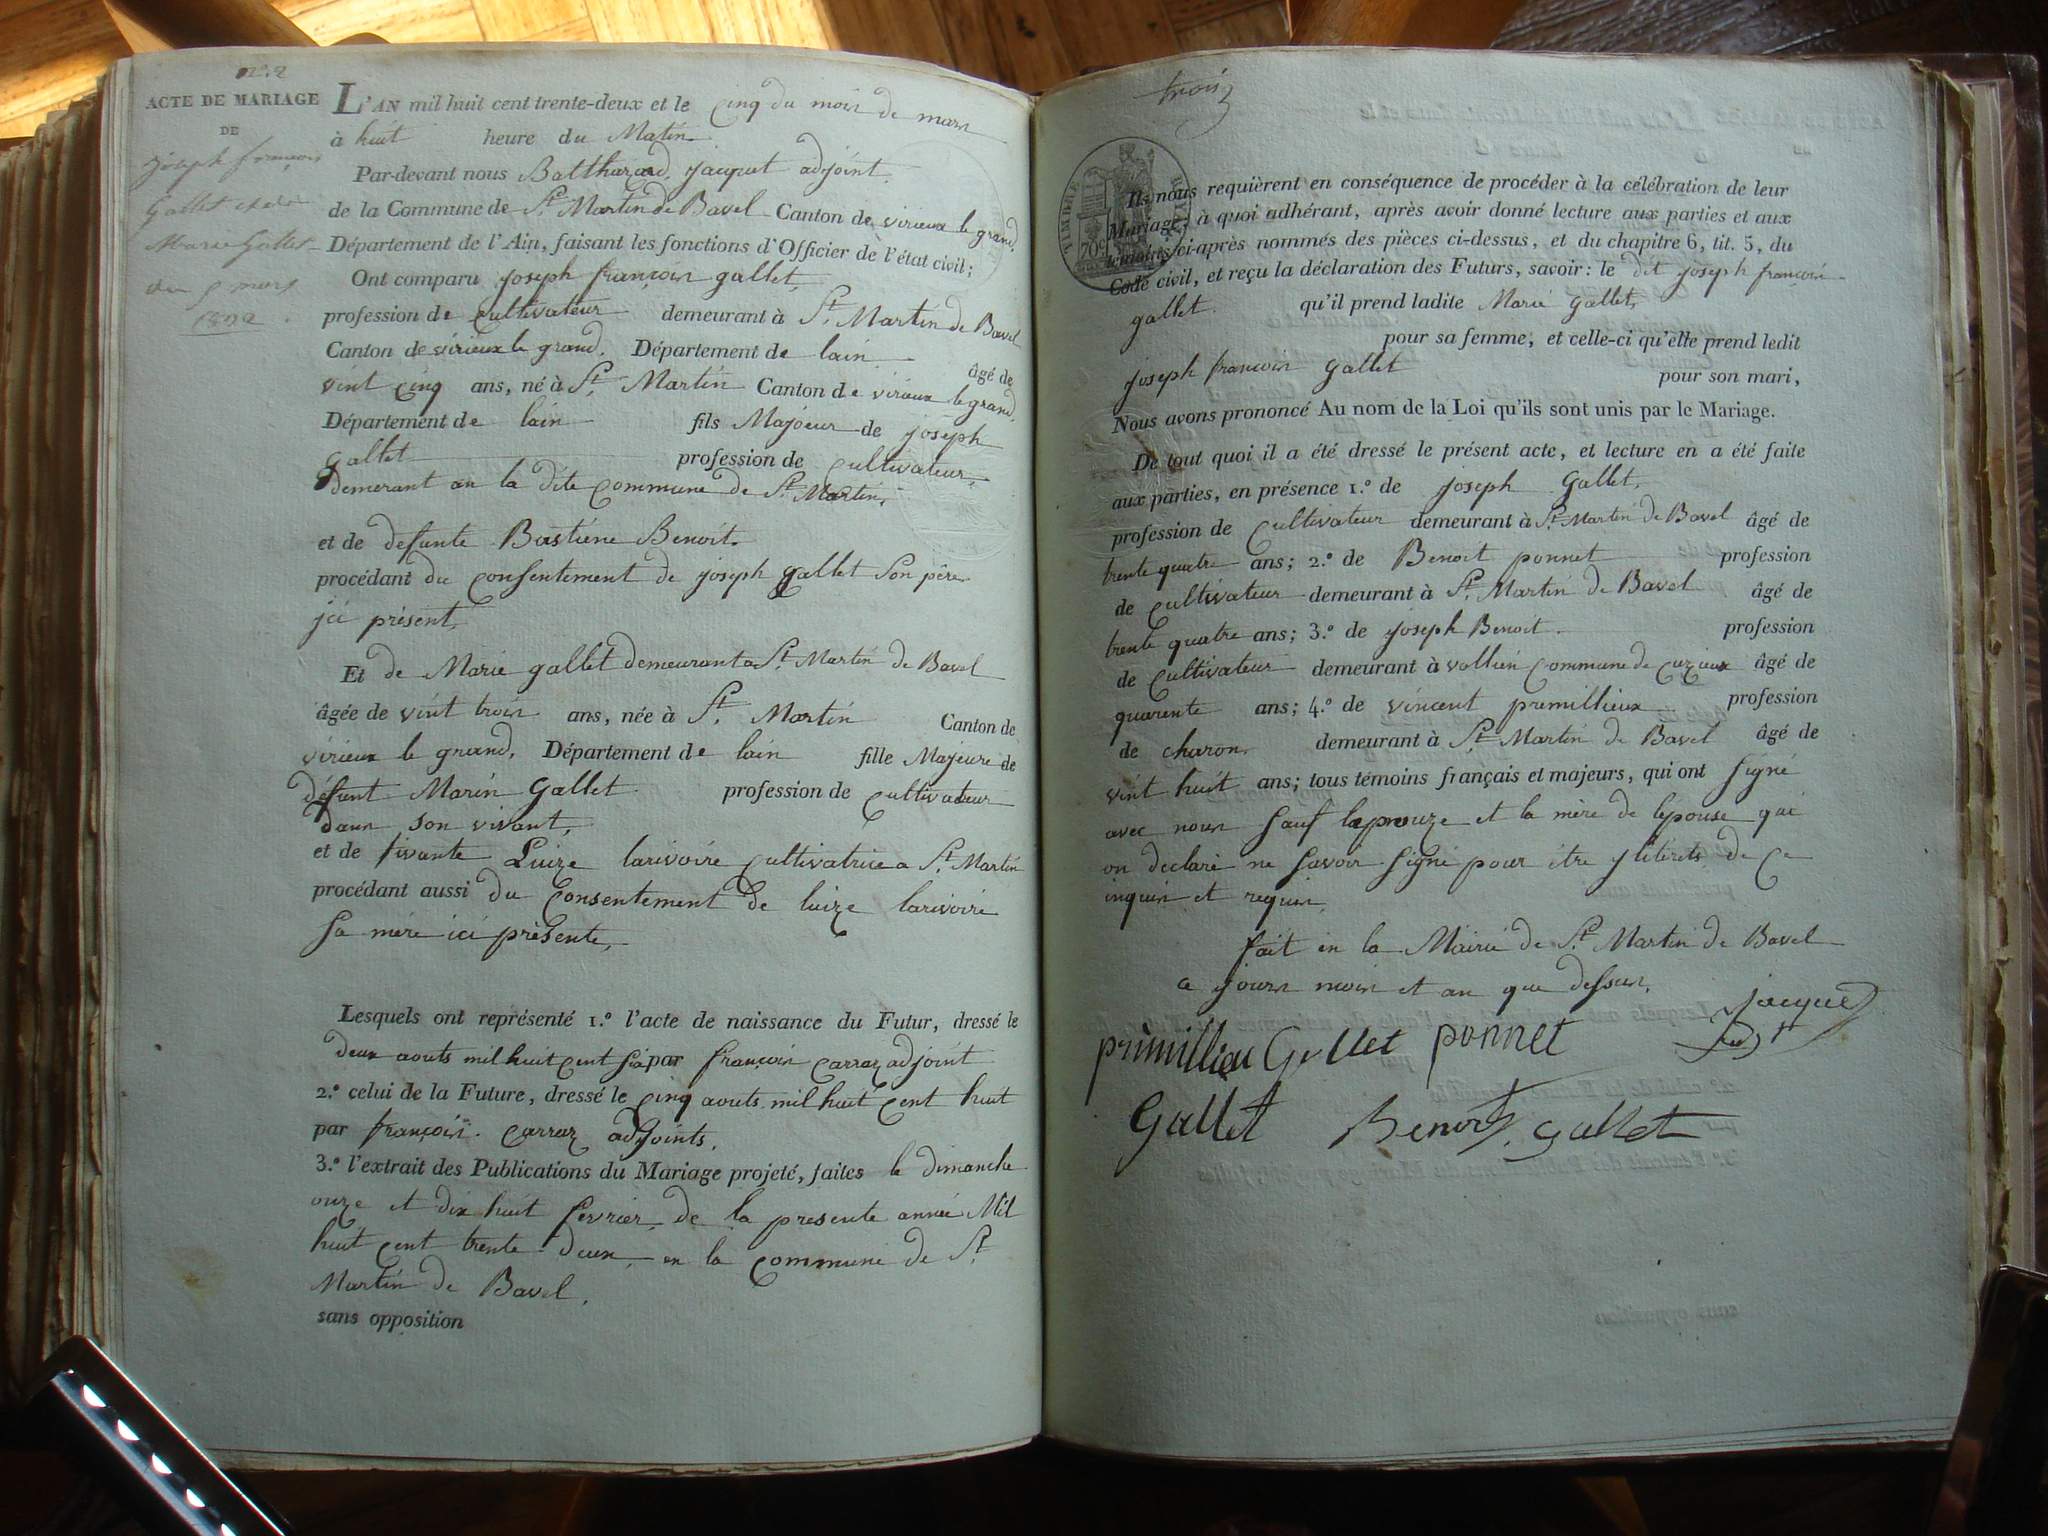 n.º 2
ACTE DE MARIAGE
DE
joseph françois
Gallet et de
Marie Gallet
du 5 mars
1832
L'AN mil huit cent trente-deux et le cinq du mois de mars
à huit heure du Matin.
Par-devant nous Balthazard jacquet adjoint
de la Commune de St. Martin de Bavel Canton de virieux le grand,
Département de l'Ain, faisant les fonctions d'Officier de l'état civil;
Ont comparu joseph françois gallet,
profession de cultivateur demeurant à St. Martin de Bavel
Canton de virieux le grand, Département de lain âgé de
vint cinq ans, né à St. Martin Canton de virieux le grand
Département de lain fils Majeur de joseph
gallet profession de cultivateur,
demerant an la dite commune de St. Martin,
et de defunte Bastiene Benoit.
procédant du consentement de joseph gallet son père
ici présent,
Et de Marie gallet demeurant a St. Martin de Bavel
âgée de vint trois ans, née à St. Martin Canton de
virieux le grand, Département de lain fille Majeure de
défunt Marin Gallet profession de cultivateur
dans son vivant,
et de vivante Luize larivoire cultivatrice a St. Martin
procédant aussi du consentement de luize larivoire
sa mère ici présente,
Lesquels ont représenté 1.º l'acte de naissance du Futur, dressé le
deux aouts mil huit cent six par françois carraz adjoint
2.º celui de la Future, dressé le cinq aouts mil huit cent huit
par françois carraz adjoints,
3.º l'extrait des Publications du Mariage projeté, faites le dimanche
onze et dix huit fevrier de la presente année Mil
huit cent trente deux, en la commune de St
Martin de Bavel,
sans opposition
trois
TIMBRE ROYAL
70 c
Ils nous requièrent en conséquence de procéder à la célébration de leur
Mariage; à quoi adhérant, après avoir donné lecture aux parties et aux
témoins ci-après nommés des pièces ci-dessus, et du chapitre 6, tit. 5, du
Code civil, et reçu la déclaration des Futurs, savoir: le dit joseph françois
gallet qu'il prend ladite Marie gallet,
pour sa femme, et celle-ci qu'elle prend ledit
joseph francois gallet pour son mari,
Nous avons prononcé Au nom de la Loi qu'ils sont unis par le Mariage.
De tout quoi il a été dressé le présent acte, et lecture en a été faite
aux parties, en présence 1.º de joseph Gallet,
profession de cultivateur demeurant à St. Martin de Bavel âgé de
trente quatre ans; 2.º de Benoit ponnet profession
de cultivateur demeurant à St. Martin de Bavel âgé de
trente quatre ans; 3.º de joseph Benoit profession
de cultivateur demeurant à vollien commune de cuzieux âgé de
quarente ans; 4.º de vincent premillieux profession
de charon demeurant à St. Martin de Bavel âgé de
vint huit ans; tous témoins français et majeurs, qui ont signé
avec nous sauf lepouze et la mère de lépouse qui
on declaré ne savoir signé pour être ilitérets de ce
inquis et requis,
fait en la Mairie de St. Martin de Bavel
a jours mois et an que dessus,
primillieu Gallet ponnet jacquet
adjt
Gallet Benoit gallet